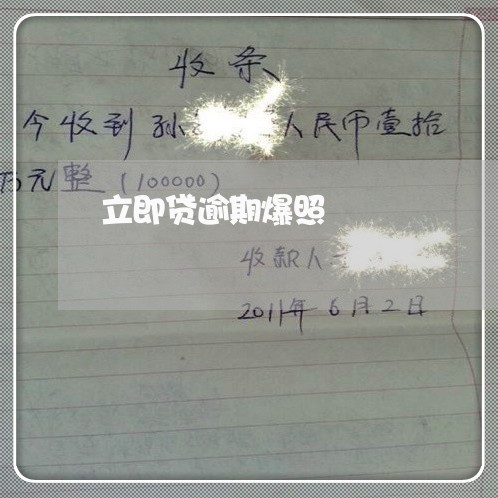 收条
今收到孙 人民币壹拾
万元整（100000）
立即贷逾期爆照
收款人
2011年6月2日